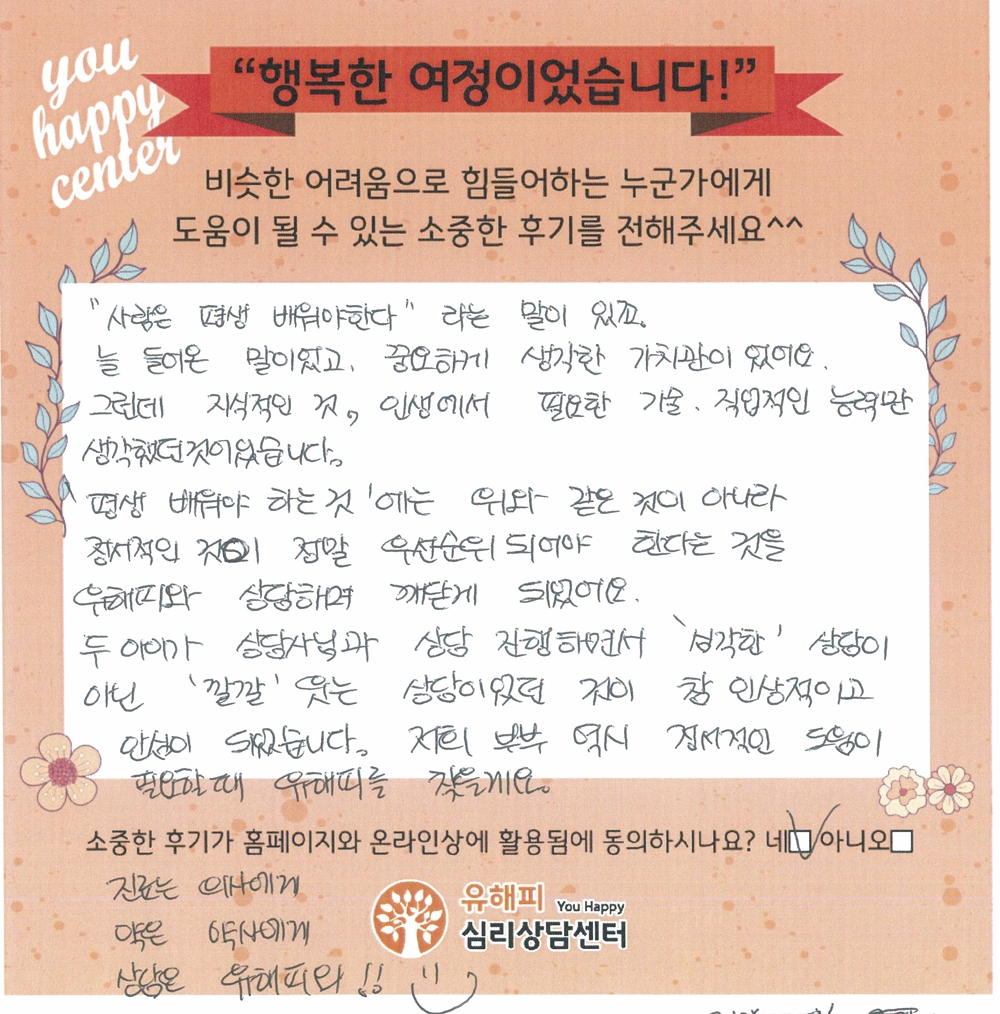 you
happy
center
“행복한 여정이었습니다!”
비슷한 어려움으로 힘들어하는 누군가에게
도움이 될 수 있는 소중한 후기를 전해주세요^^
"사람은 평생 배워야한다" 라는 말이 있죠.
늘 들어온 말이었고, 중요하게 생각한 가치관이 었어요.
그런데 지식적인 것, 인생에서 필요한 기술. 직업적인 능력만
생각했던것이었습니다.
평생 배워야 하는것'에는 위와 같은 것이 아니라
정서적인 것이 정말 우선순위 되어야 한다는 것을
유해피와 상담하며 깨닫게 되었어요.
두 아이가 상담사님과 상담 진행하면서 '심각한' 상담이
아닌 '깔깔' 웃는 상담이었던 것이 참 인상적이고
안심이 되었습니다. 저희 부부 역시 정서적인 도움이
필요할때 유해피를 찾을게요.
소중한 후기가 홈페이지와 온라인상에 활용됨에 동의하시나요? 네 아니오
진료는 의사에게
약은 약사에게
상담은 유해피와!! :)
유해피 You Happy
심리상담센터